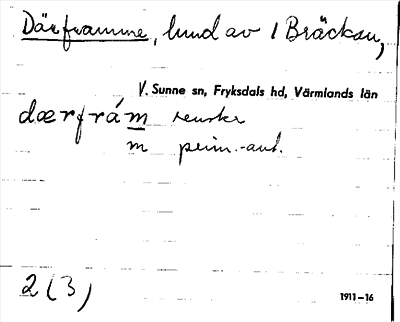 Därframme, lund av 1 Bräckan,
V. Sunne sn, Fryksdals hd, Värmlands län
dærfrám renskr
m prim.-ant.
2 (3)
1911–16